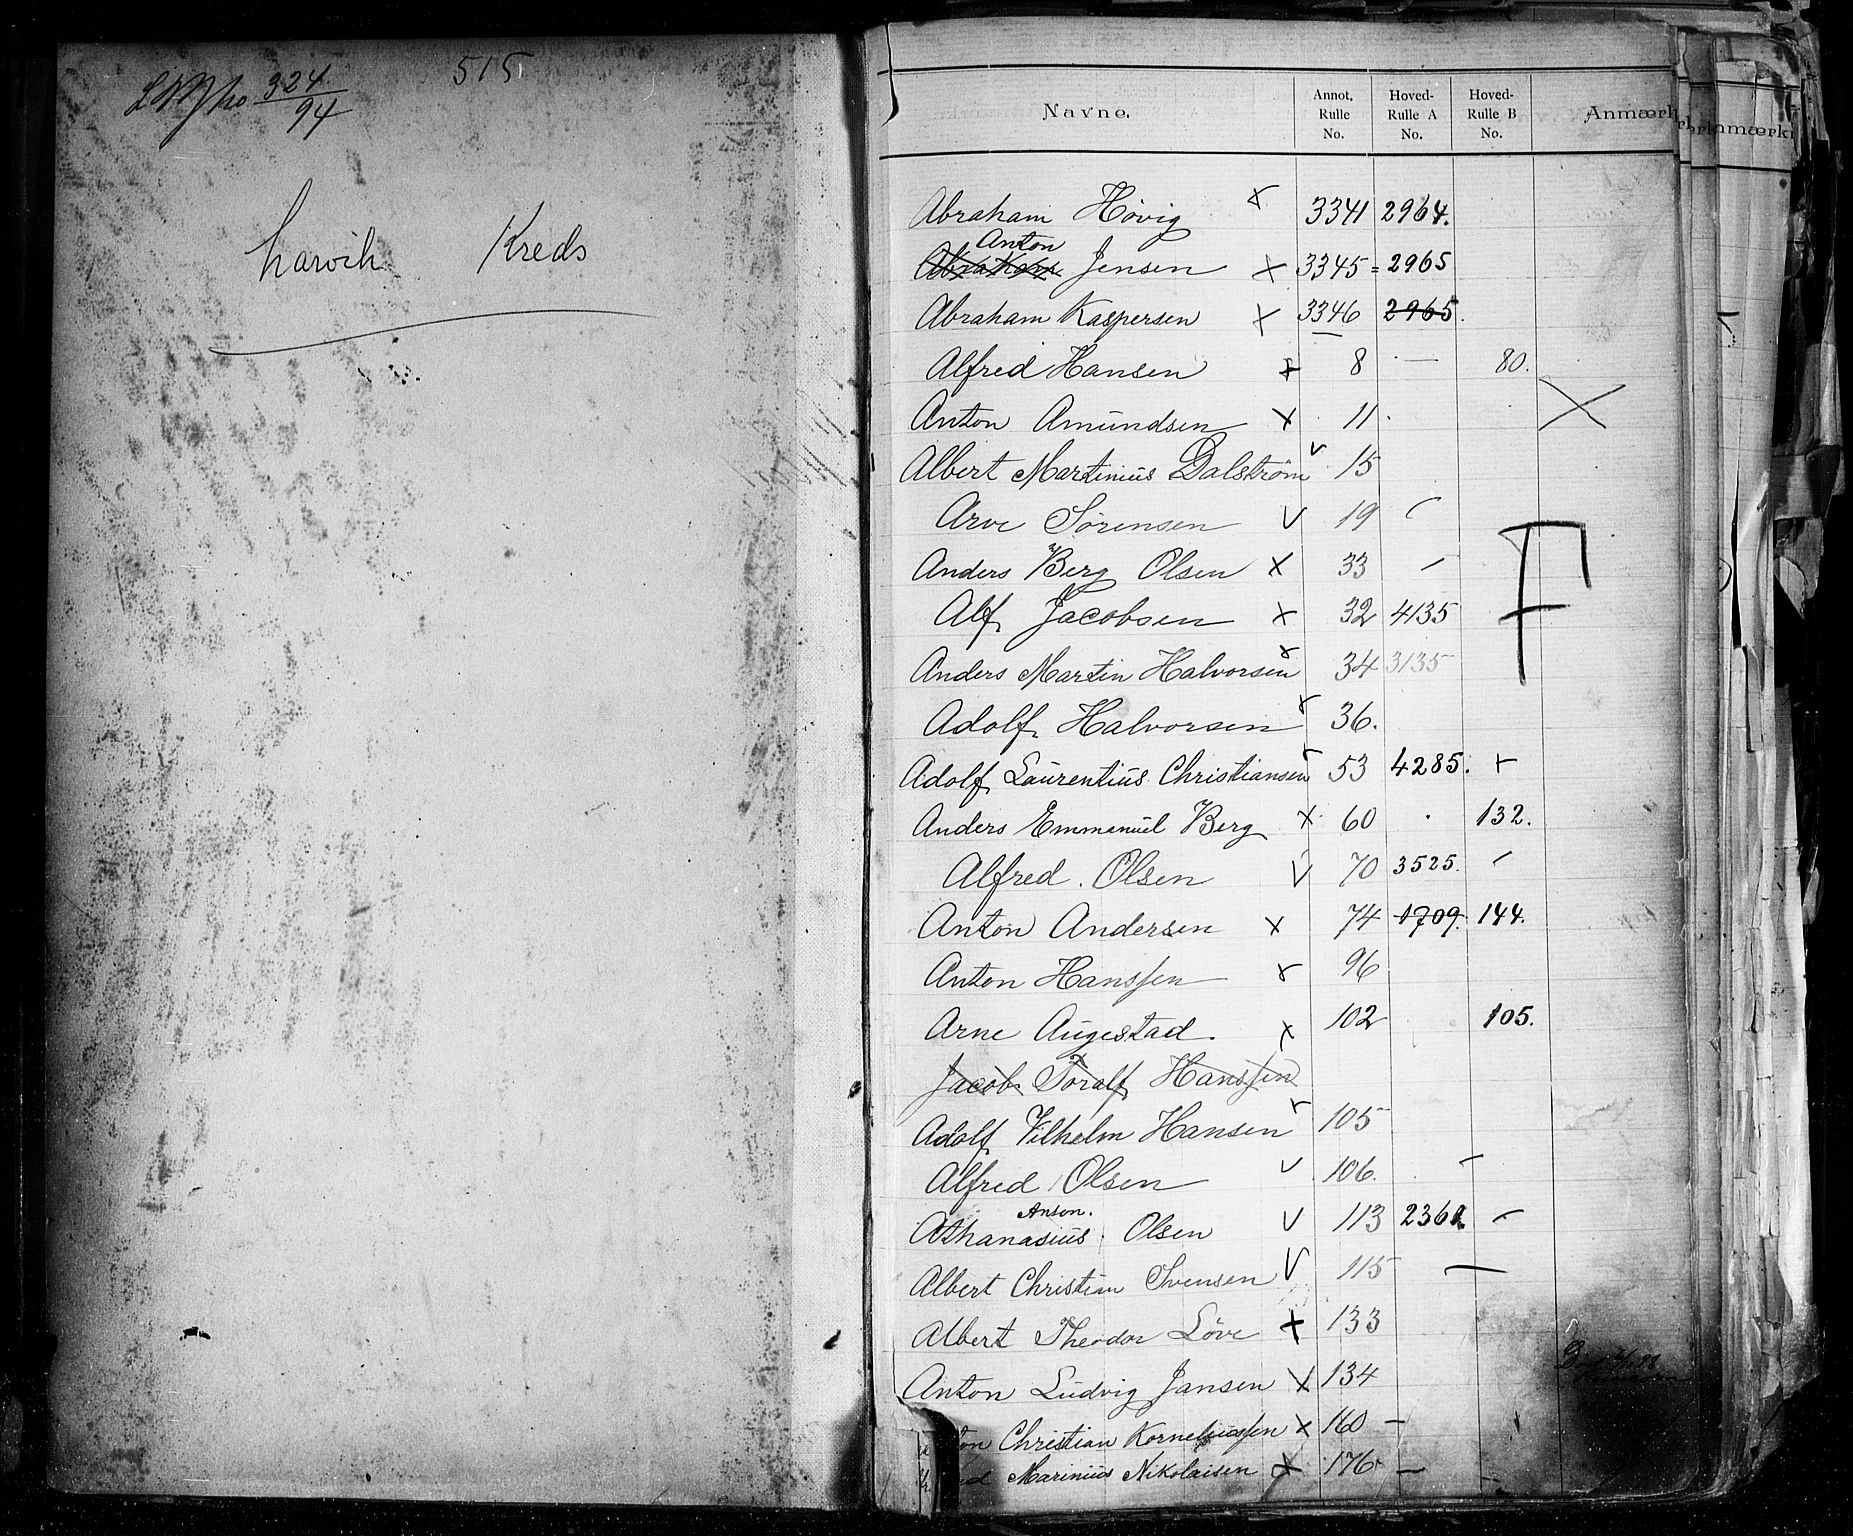 324
94
515
Larvik Kreds
Navne. Annot. Rulle No. Hoved-Rulle A No. Hoved-Rulle B No. Anmærk
Abraham Høvig x 3341 2964.
Anton
Abraham Jensen x 3345 = 2965
Abraham Kaspersen x 3346 2965.
Alfred Hansen x 8 — 80.
Anton Amundsen x 11
Albert Martinius Dalstrøm v 15
Arve Sörensen v 19
Anders Berg Olsen x 33 –
Alf Jacobsen x 32 4135 F
Anders Martin Halvorsen x 34 3135
Adolf Halvorsen x 36.
Adolf Laurentius Christiansen 53 4285. +
Anders Emmanuel Berg x 60 132.
Alfred Olsen v 70 3525. –
Anton Andersen x 74 1709. 144.
Anton Hanssen x 96
Arne Augestad. x 102 105.
Jacob Toralf Hanssen
Adolf Vilhelm Hansen 105
Alfred Olsen v 106. –
Anson.
Athanasius Olsen v 113 2362 –
Albert Christian Svensen v 115 —
Albert Theodor Löve x 133
Anton Ludvig Jansen x 134
ton Christian Korneliussen x 160 –
ed Marinius Nikolaisen x 176 –